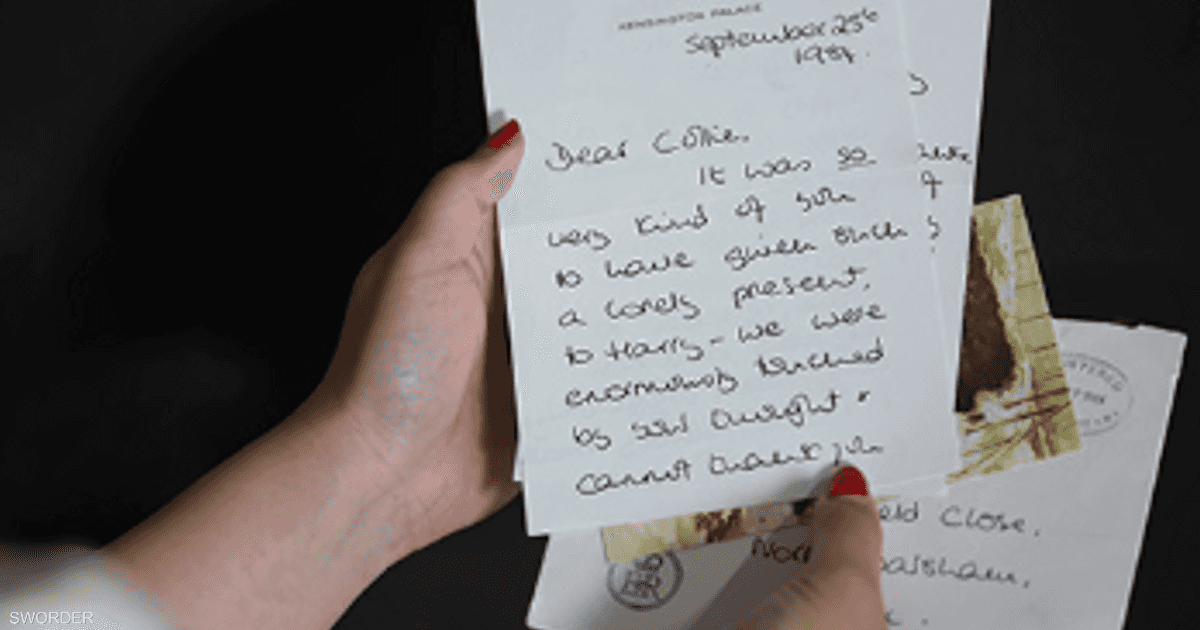 KENSINGTON PALACE
September 25th
1984.
Dear Collie.
It was so
very kind of you
to have given such
a lovely present,
to Harry - we were
enormously touched
by your thought &
cannot thank you
eld Close.
Nor
oarsham,
SWORDER